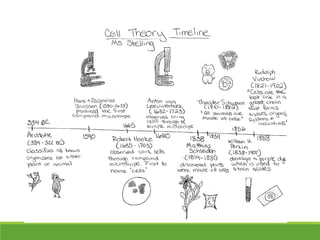 Cell Theory Timeline
Ms Stelling
Hans & Zacharias
Janssen
produced the first
compound microscope
Anton van
Leeuwenhoek
(1632-1723)
observed living
cells through a
simple microscope
Theodor Schwann
(1810-1882)
"all animals are
made of cells"
Rudolph
Virchow
(1821-1902)
"Cells are the
last link in a
great chain
that forms
tissues, organs,
systems &
individuals"
384 BC
1590
1665
1680
1838
1839
1856
1858
Aristotle
(384-322 BC)
classifies all known
organisms as either
plant or animal
Robert Hooke
(1635-1703)
observed cork cells
through compound
microscope. First to
name "cells"
Matthias
Schleiden
discovered plants
were made of cells
William H.
Perkin
(1838-1907)
develops a purple dye
which is used to
stain slides